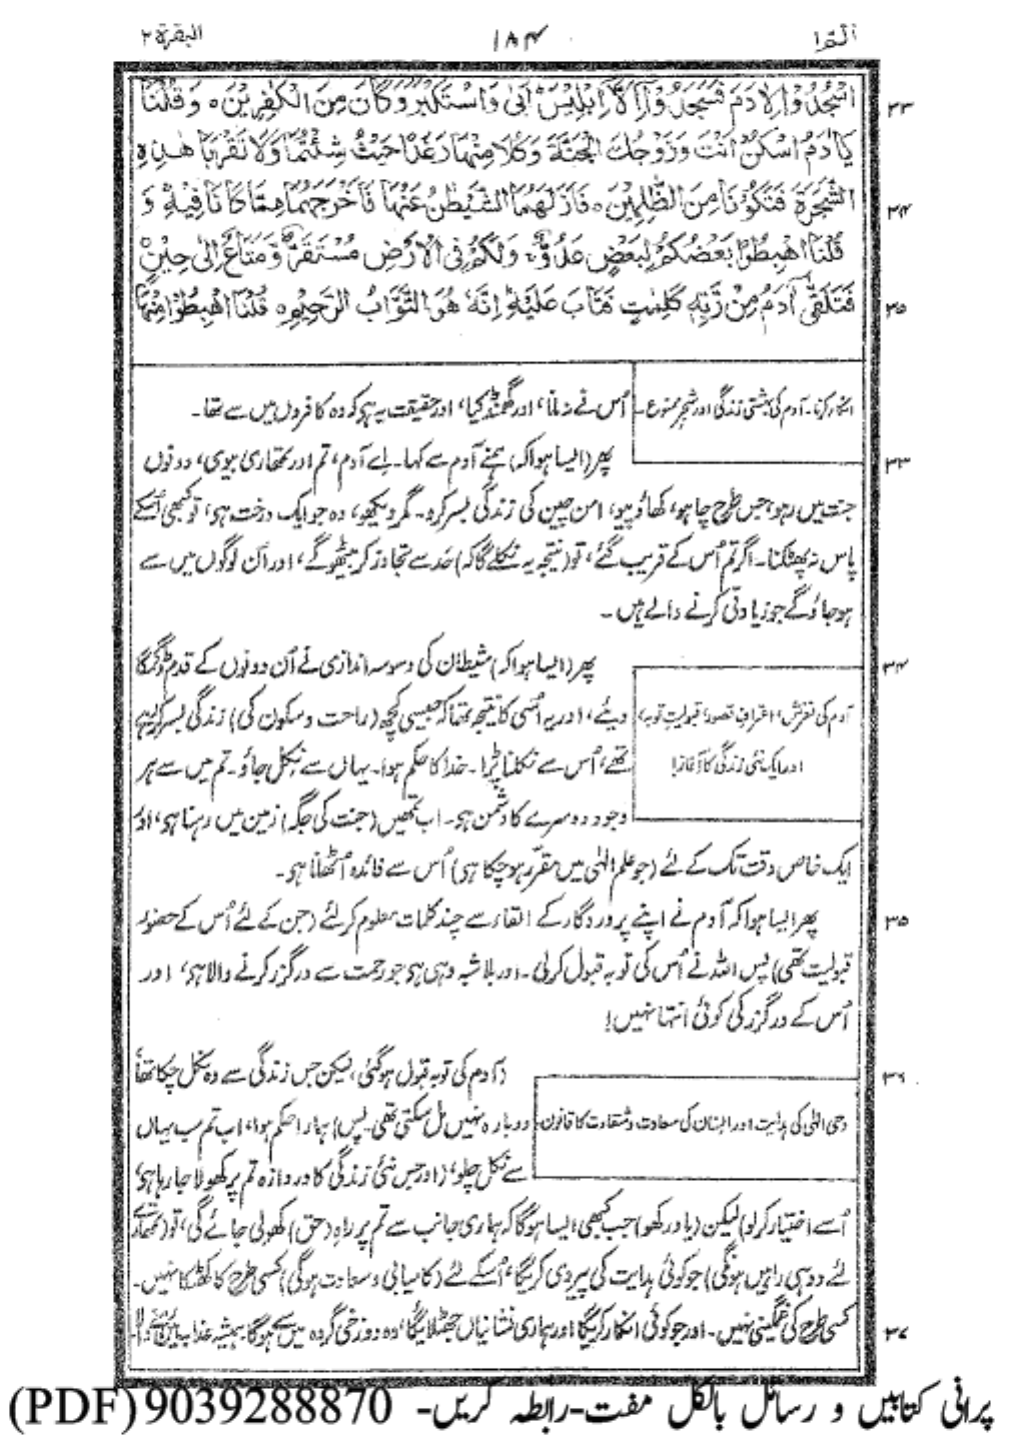 البقرة ۲ ۱۸۴ الٓمّٓ ۱
اسْجُدُوْا لِاٰدَمَ فَسَجَدُوْۤا اِلَّاۤ اِبْلِیْسَ اَبٰی وَاسْتَكْبَرَ وَكَانَ مِنَ الْكٰفِرِیْنَ ۝ وَقُلْنَا ۳۳
یٰۤاٰدَمُ اسْكُنْ اَنْتَ وَزَوْجُكَ الْجَنَّةَ وَكُلَا مِنْهَا رَغَدًا حَیْثُ شِئْتُمَا وَلَا تَقْرَبَا هٰذِهِ
الشَّجَرَةَ فَتَكُوْنَا مِنَ الظّٰلِمِیْنَ ۝ فَاَزَلَّهُمَا الشَّیْطٰنُ عَنْهَا فَاَخْرَجَهُمَا مِمَّا كَانَا فِیْهِ وَ ۳۴
قُلْنَا اهْبِطُوْا بَعْضُكُمْ لِبَعْضٍ عَدُوٌّ وَلَكُمْ فِی الْاَرْضِ مُسْتَقَرٌّ وَّمَتَاعٌ اِلٰی حِیْنٍ
فَتَلَقّٰۤی اٰدَمُ مِنْ رَّبِّهٖ كَلِمٰتٍ فَتَابَ عَلَیْهِ اِنَّهٗ هُوَ التَّوَّابُ الرَّحِیْمُ ۝ قُلْنَا اهْبِطُوْا مِنْهَا ۳۵
انکار کرنا۔ آدم کی بہشتی زندگی اور شجرِ ممنوع۔
اُس نے نہ مانا، اور گھمنڈ کیا، اور حقیقت یہ ہو کہ وہ کافروں میں سے تھا۔
پھر (ایسا ہوا کہ) ہمنے آدم سے کہا۔ اے آدم، تم اور تمھاری بیوی، دونوں ۳۳
جنت میں رہو، جس طرح چاہو، کھاؤ پیو، امن چین کی زندگی بسر کرو۔ مگر دیکھو، وہ جو ایک درخت ہو، تو کبھی اُسکے
پاس نہ پھٹکنا۔ اگر تم اُس کے قریب گئے، تو (نتیجہ یہ نکلے گا کہ) حد سے تجاوز کر بیٹھو گے، اور اُن لوگوں میں سے
ہو جاؤ گے جو زیادتی کرنے والے ہیں۔
پھر (ایسا ہوا کہ) شیطان کی وسوسہ اندازی نے اُن دونوں کے قدم ڈگمگا ۳۴
آدم کی لغزش، اعترافِ قصور، قبولیتِ توبہ،
اور ایک نئی زندگی کا آغاز!
دیئے، اور یہ اُسی کا نتیجہ تھا کہ جیسی کچھ (راحت و سکون کی) زندگی بسر کر رہے
تھے، اُس سے نکلنا پڑا۔ خدا کا حکم ہوا۔ یہاں سے نکل جاؤ۔ تم میں سے ہر
وجود دوسرے کا دشمن ہو۔ اب تمھیں (جنت کی جگہ) زمین میں رہنا ہو، اور
ایک خاص وقت تک کے لئے (جو علم الٰہی میں مقرر ہو چکا ہی) اُس سے فائدہ اُٹھانا ہو۔
پھر ایسا ہوا کہ آدم نے اپنے پروردگار کے القاء سے چند کلمات معلوم کر لئے (جن کے لئے اُس کے حضور ۳۵
قبولیت تھی) پس اللہ نے اُس کی توبہ قبول کر لی۔ اور بلا شبہ وہی ہو جو رحمت سے درگزر کرنے والا ہو، اور
اُس کے درگزر کی کوئی انتہا نہیں!
(آدم کی توبہ قبول ہو گئی، لیکن جس زندگی سے وہ نکل چکا تھا ۳۶
وحی الٰہی کی ہدایت اور انسان کی سعادت و شقاوت کا قانون۔
دوبارہ نہیں مل سکتی تھی۔ پس) ہمارا حکم ہوا، اب تم سب یہاں
سے نکل چلو، (اور جس نئی زندگی کا دروازہ تم پر کھولا جا رہا ہو،
اُسے اختیار کر لو) لیکن (یاد رکھو) جب کبھی ایسا ہو گا کہ ہماری جانب سے تم پر راہ (حق) کھولی جائے گی، تو (تمھارے
لئے دو ہی راہیں ہونگی) جو کوئی ہدایت کی پیروی کریگا، اُسکے لئے (کامیابی و سعادت ہوگی) کسی طرح کا کھٹکا نہیں۔
کسی طرح کی غمگینی نہیں۔ اور جو کوئی انکار کریگا اور ہماری نشانیاں جھٹلائیگا، وہ دوزخی گروہ میں سے ہوگا۔ ہمیشہ عذاب میں ۳۷
پرانی کتابیں و رسائل بالکل مفت-رابطہ کریں- 9039288870 (PDF)